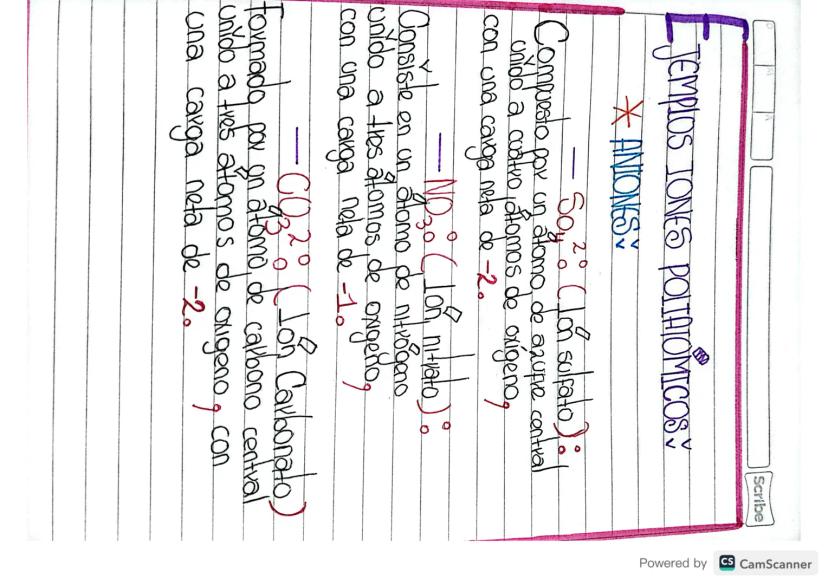 EJEMPLOS IONES POLIATÓMICOS:
* ANIONES:
— SO₄²: (Ión sulfato):
Compuesto por un átomo de azufre central
unido a cuatro átomos de oxígeno,
con una carga neta de -2.
— NO₃: (Ión nitrato):
Consiste en un átomo de nitrógeno
unido a tres átomos de oxígeno,
con una carga neta de -1.
— CO₃²: (Ión Carbonato)
Formado por un átomo de carbono central
unido a tres átomos de oxígeno, con
una carga neta de -2.
Scribe
Powered by CS CamScanner